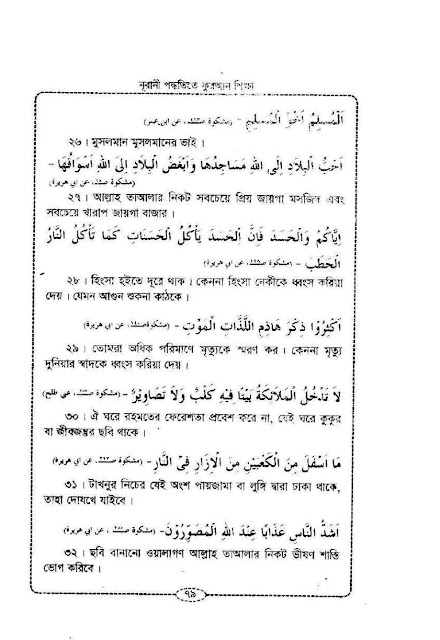 নূরানী পদ্ধতিতে কুরআন শিক্ষা
اَلْمُسْلِمُ اَخُو الْمُسْلِمِ - (مشكوة عن ابن عمر)
২৬। মুসলমান মুসলমানের ভাই।
اَحَبُّ الْبِلَادِ اِلَى اللهِ مَسَاجِدُهَا وَاَبْغَضُ الْبِلَادِ اِلَى اللهِ اَسْوَاقُهَا -
(مشكوة عن ابي هريرة)
২৭। আল্লাহ তাআলার নিকট সবচেয়ে প্রিয় জায়গা মসজিদ এবং
সবচেয়ে খারাপ জায়গা বাজার।
اِيَّاكُمْ وَالْحَسَدَ فَاِنَّ الْحَسَدَ يَأْكُلُ الْحَسَنَاتِ كَمَا تَأْكُلُ النَّارُ
الْحَطَبَ - (مشكوة عن ابي هريرة)
২৮। হিংসা হইতে দূরে থাক। কেননা হিংসা নেকীকে ধ্বংস করিয়া
দেয়। যেমন আগুন শুকনা কাঠকে।
اَكْثِرُوْا ذِكْرَ هَاذِمِ اللَّذَّاتِ الْمَوْتِ - (مشكوة عن ابي هريرة)
২৯। তোমরা অধিক পরিমাণে মৃত্যুকে স্মরণ কর। কেননা মৃত্যু
দুনিয়ার স্বাদকে ধ্বংস করিয়া দেয়।
لَا تَدْخُلُ الْمَلَائِكَةُ بَيْتًا فِيْهِ كَلْبٌ وَلَا تَصَاوِيْرُ - (مشكوة)
৩০। ঐ ঘরে রহমতের ফেরেশতা প্রবেশ করে না, যেই ঘরে কুকুর
বা জীবজন্তুর ছবি থাকে।
مَا اَسْفَلَ مِنَ الْكَعْبَيْنِ مِنَ الْاِزَارِ فِى النَّارِ - (مشكوة عن ابي هريرة)
৩১। টাখনুর নিচের যেই অংশ পায়জামা বা লুঙ্গি দ্বারা ঢাকা থাকে,
তাহা দোযখে যাইবে।
اَشَدُّ النَّاسِ عَذَابًا عِنْدَ اللهِ الْمُصَوِّرُوْنَ - (مشكوة عن ابي هريرة)
৩২। ছবি বানানো ওয়ালাগণ আল্লাহ তাআলার নিকট ভীষণ শাস্তি
ভোগ করিবে।
৭৯